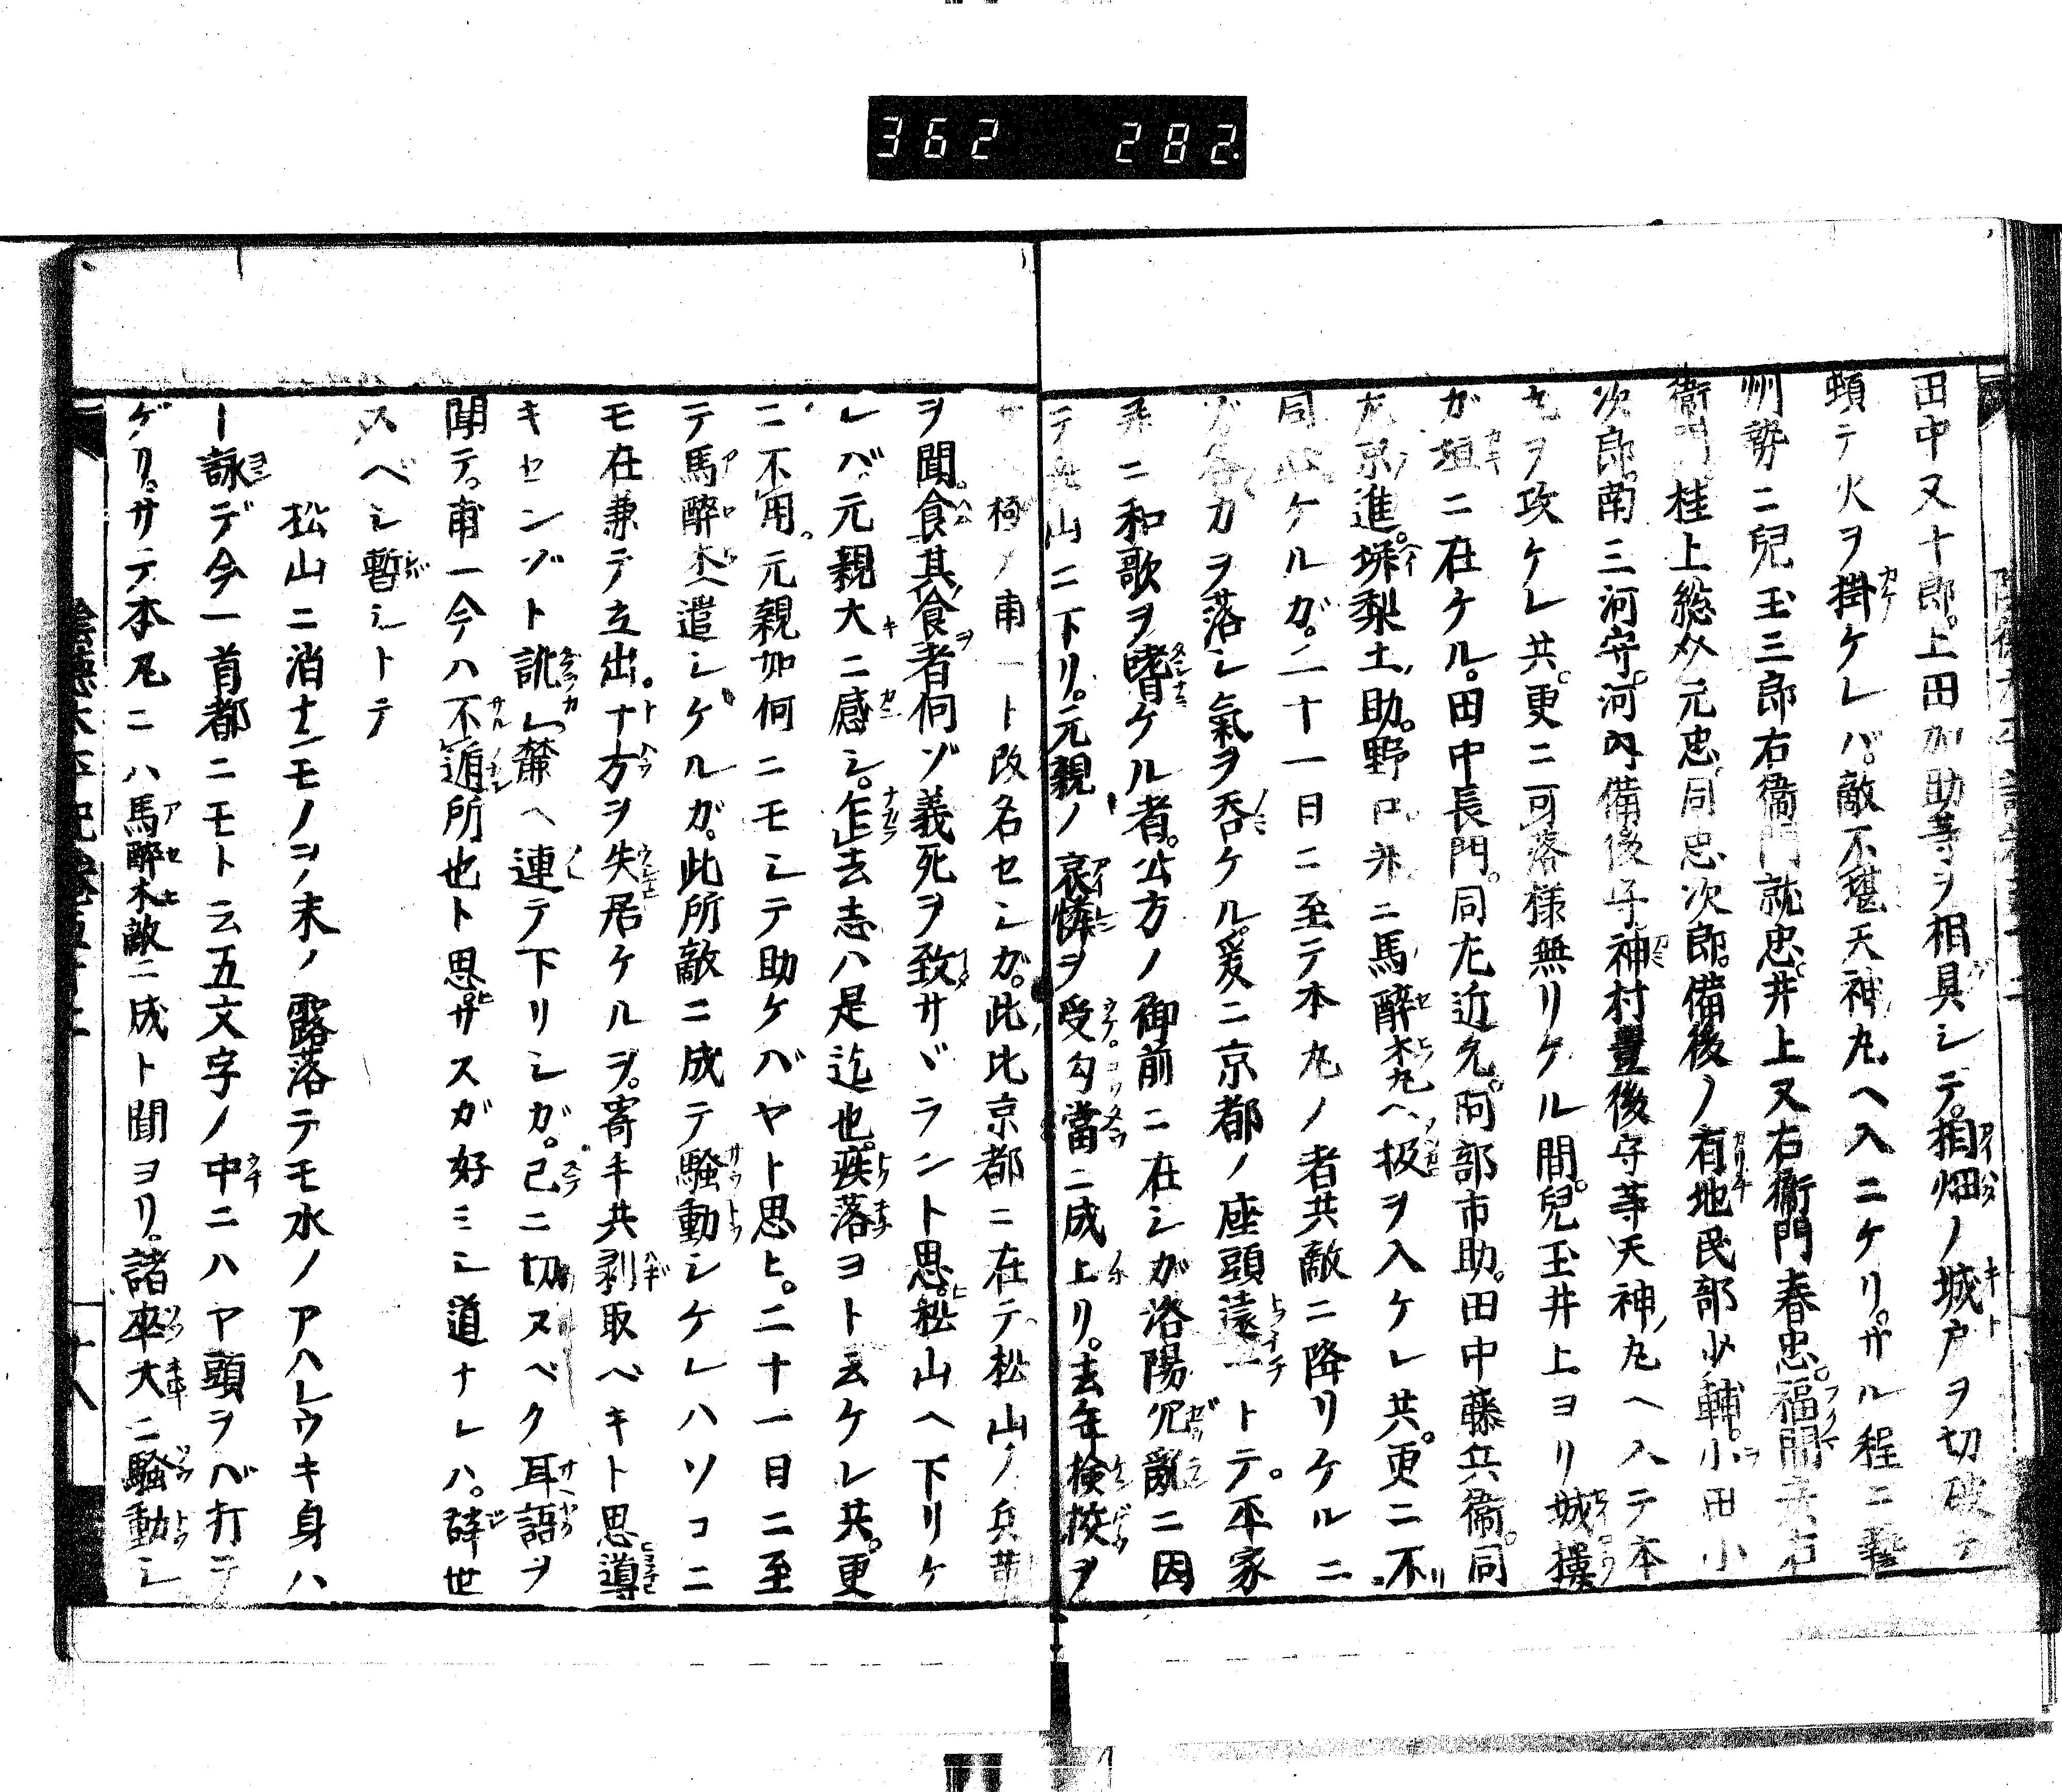 362 282
田中又十郎。上田加助等ヲ相具シテ。相畑ノ城戸ヲ切破テ
頓テ火ヲ掛ケレバ。敵不堪天神丸ヘ入ニケリ。サル程ニ藝
州勢ニ兒玉三郎右衞門就忠。井上又右衞門春忠。福間
衞門。桂上総介元忠。同忠次郎。備後ノ有地民部少輔。小田小
次郎。南三河守。河内備後守。神村豊後守等天神丸ヘ入テ本
丸ヲ攻ケレ共。更ニ可落様無リケル間。兒玉井上ヨリ城
ガ垣ニ在ケル。田中長門。同左近允。阿部市助。田中藤兵衞。同
左京進。塀梨土助。野口ニ馬醉木丸ヘ扱ヲ入ケレ共。更ニ不
同心ケルガ。二十一日ニ至テ本丸ノ者共敵ニ降リケルニ
ゾ各力ヲ落シ氣ヲ呑ケル。爰ニ京都ノ座頭遠一トテ。平家
ニ和歌ヲ嗜ケル者。公方ノ御前ニ在シガ洛陽兇亂ニ因
テ此山ニ下リ。元親ノ哀憐ヲ受勾當ニ成上リ。去年検挍ヲ
甫一ト改名セシガ。此比京都ニ在テ松山ノ兵革
ヲ聞。食其食者何ゾ義死ヲ致サヾラント思。松山ヘ下リケ
レバ。元親大ニ感シ。乍去志ハ是迄也。疾落ヨト云ケレ共。更
ニ不用。元親如何ニモシテ助ケバヤト思ヒ。二十一日ニ至
テ馬醉木ヘ遣シケルガ。此所敵ニ成テ騒動シケレハソコニ
モ在兼テ立出。十方ヲ失居ケルヲ。寄手共剥取ベキト思導
キセンゾト訛シ麓ヘ連テ下リシガ。已ニ切ヌベク耳語ヲ
聞テ。甫一今ハ不遁所也ト思サスガ好ミシ道ナレハ。辞世
スベシ暫シトテ
松山ニ消ナモノヲノ末ノ露落テモ水ノアハレウキ身ハ
ト詠デ今一首都ニモト云五文字ノ中ニハヤ頭ヲバ打テ
ゲリ。サテ本丸ニハ馬醉木敵ニ成ト聞ヨリ。諸卒大ニ騒動シ